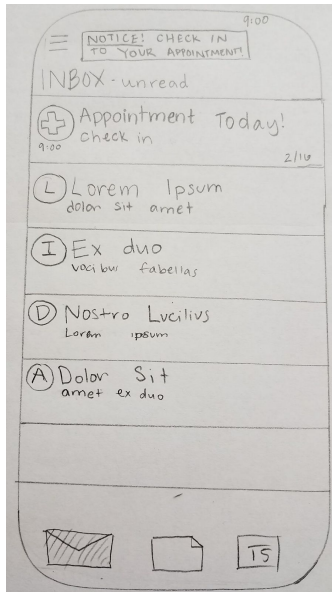 9:00
NOTICE! CHECK IN
TO YOUR APPOINTMENT!
INBOX - unread
Appointment Today!
check in
9:00
2/16
L
Lorem Ipsum
dolor sit amet
I
Ex duo
vocibus fabellas
D
Nostro Lucilius
Lorem ipsum
A
Dolor Sit
amet ex duo
15